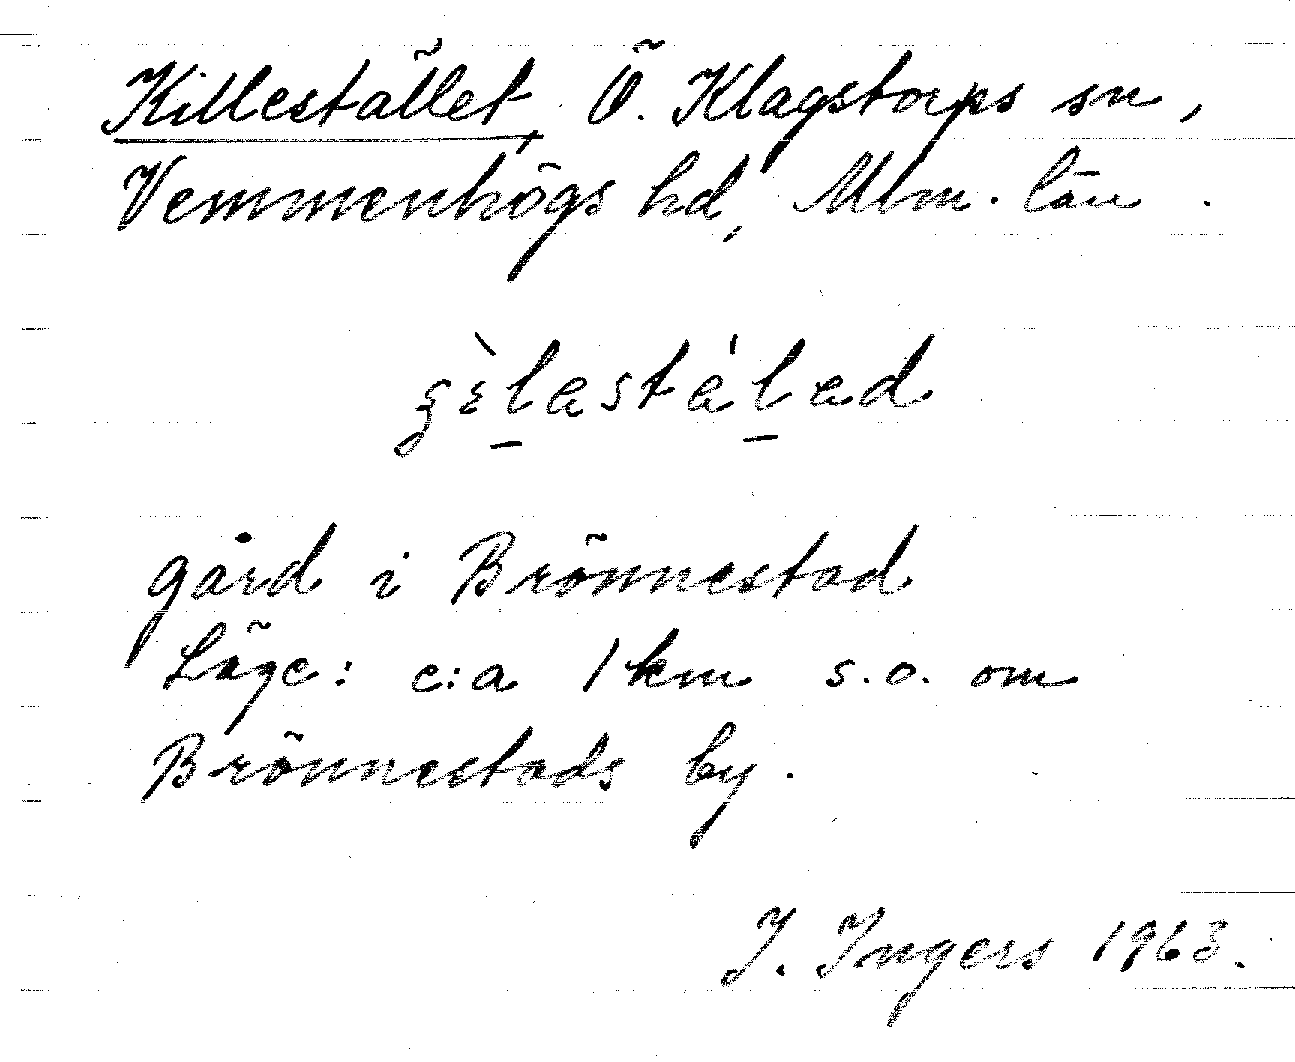 Killestället, Ö. Klagstorps sn,
Vemmenhögs hd, Mlm. län.
gård i Brönnestad
Läge: c:a 1 km s.o. om
Brönnestads by.
I. Ingers 1963.